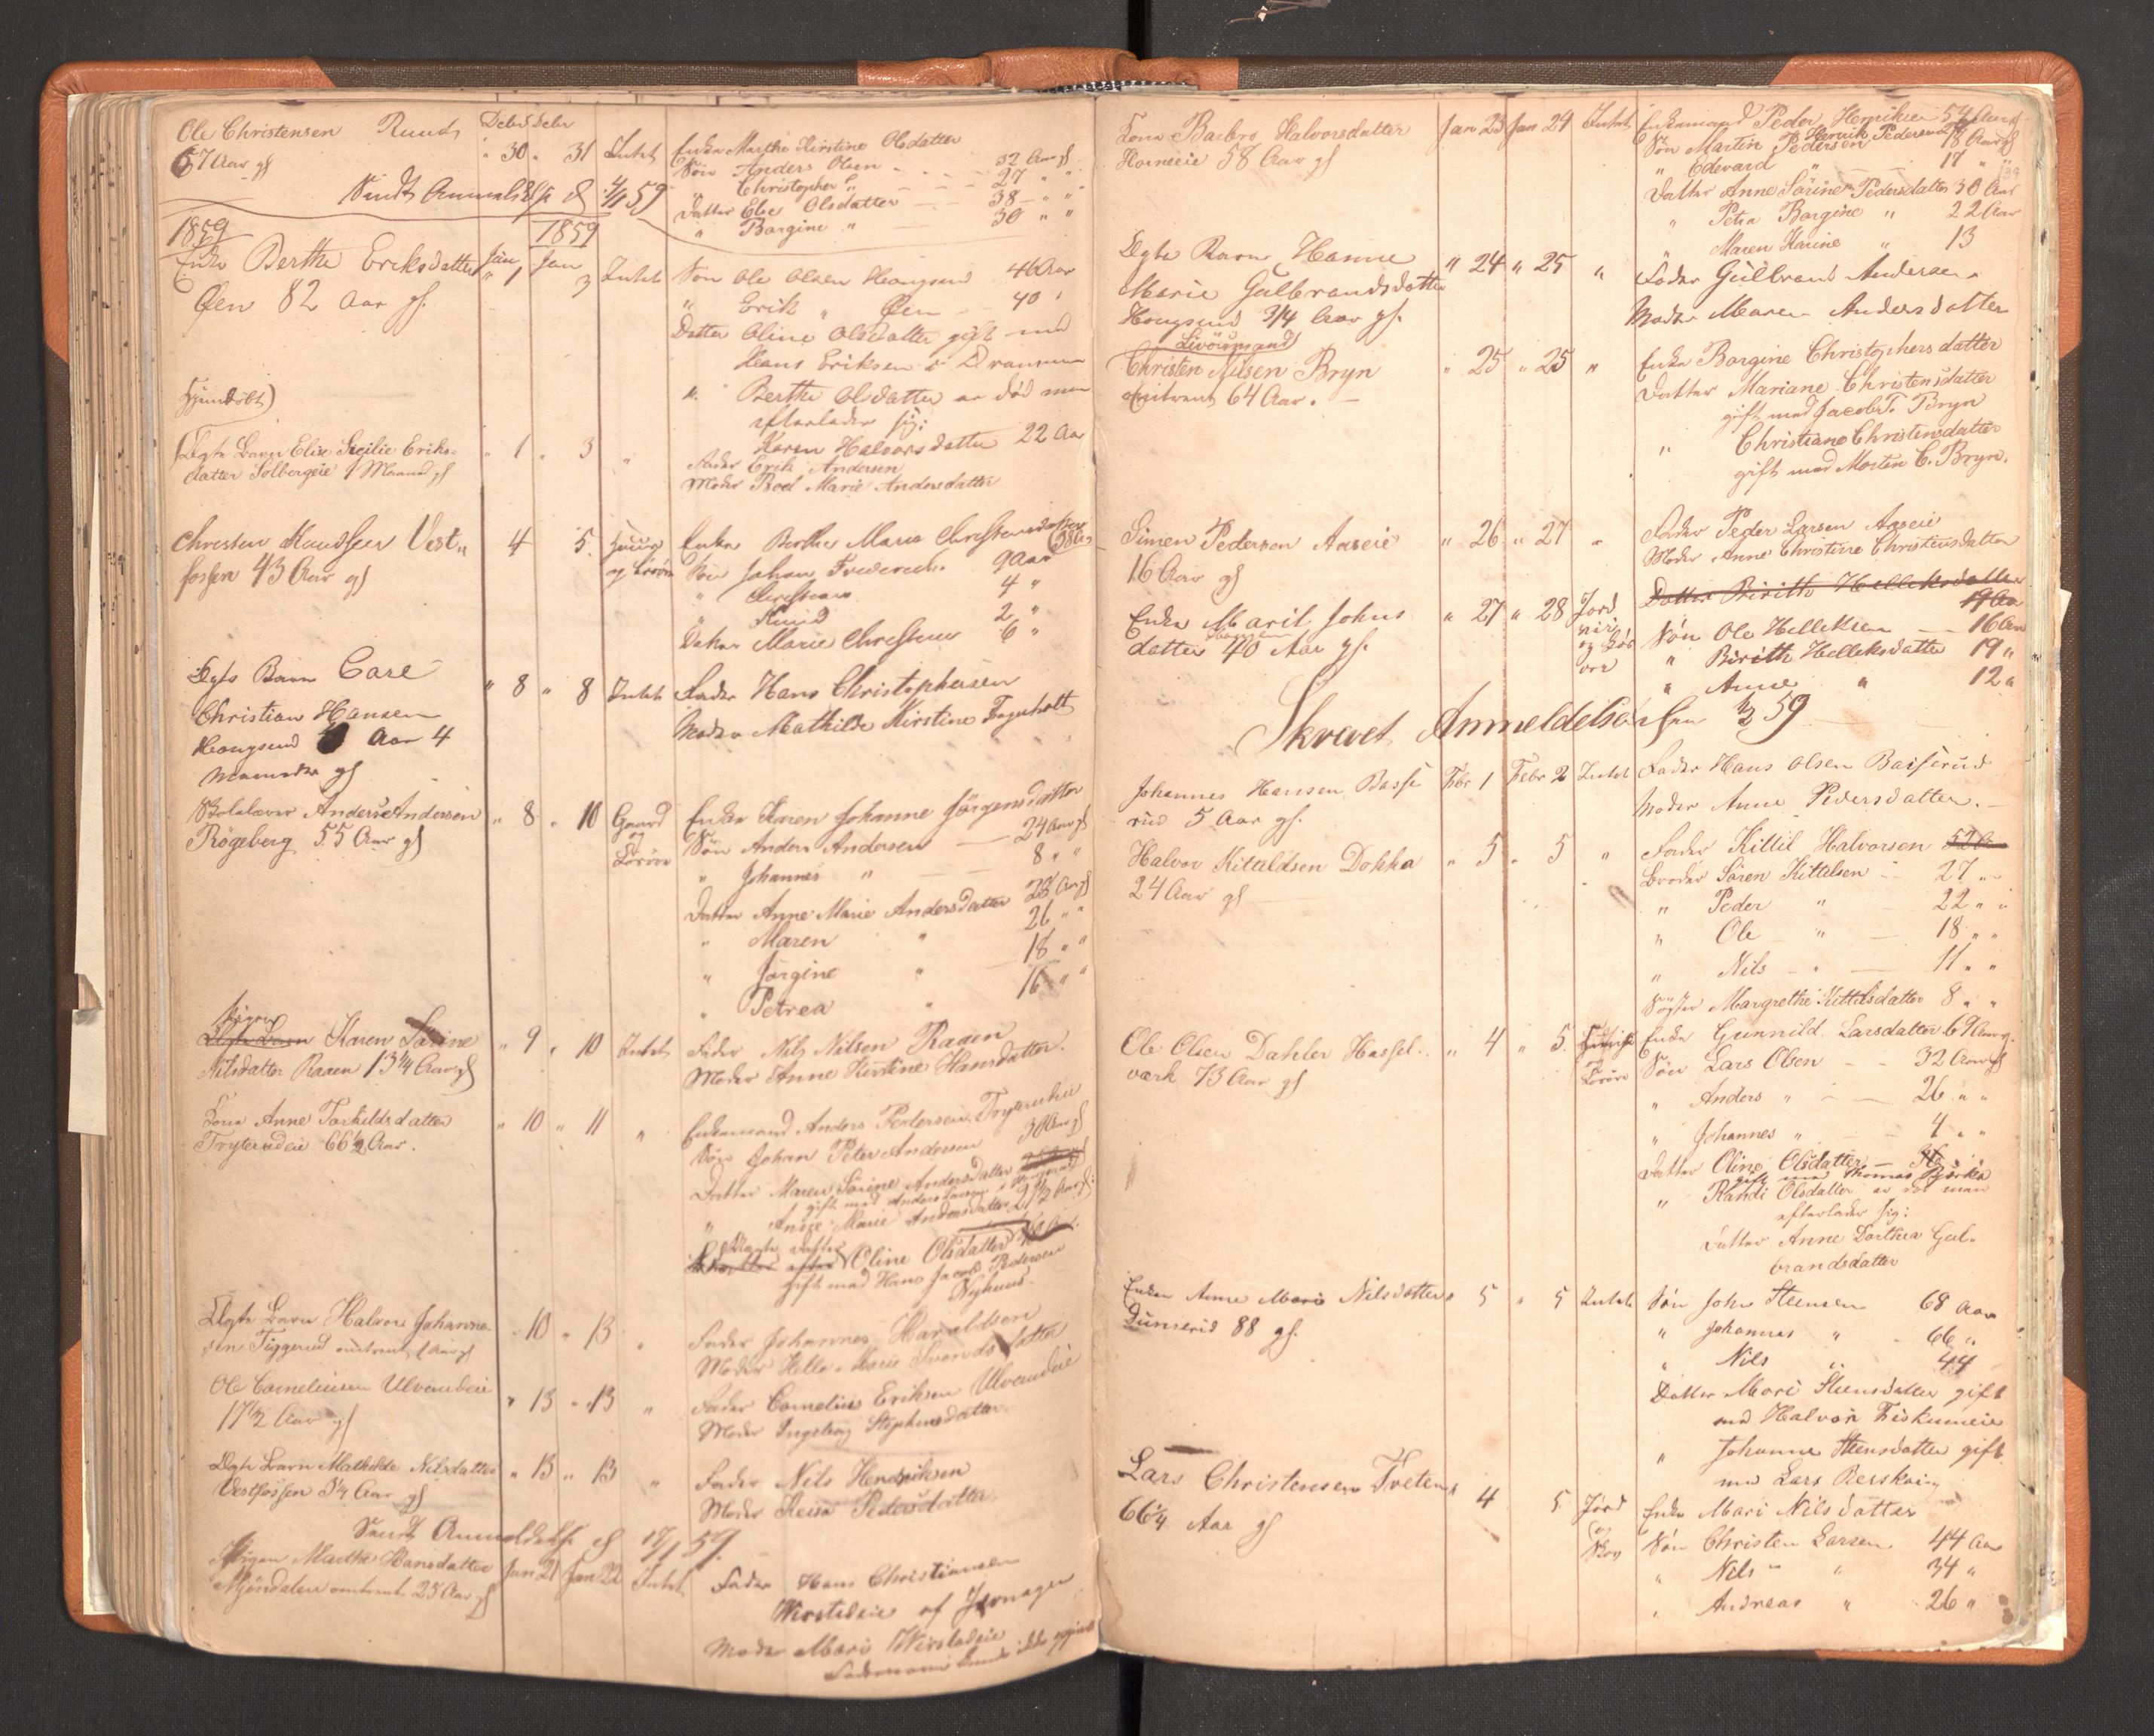 Debr Debr
Ole Christensen Ruud " 30 " 31 Intet Enke Marthe Kirstine Olsdatter
67 Aar gl Søn Anders Olsen - - - 32 Aar gl
" Christopher " - - - 27 " "
Sendt Anmeldelse d 4/1 59 Datter Else Olsdatter - - 38 " "
" Borgine " 30 " "
1859 1859
Enke Berthe Eriksdatter Jan " 1 Jan 3 Intet Søn Ole Olsen Hougsund 46 Aar
Øen 82 Aar gl. " Erik " Øen - 40 "
Datter Oline Olsdatter gift med
Hans Eriksen i Drammen
" Berthe Olsdatter er død men
Hjemdøbt) efterlader sig:
Karen Halvorsdatter 22 Aar
(Ægte Barn Elise Secilie Eriks- " 1 " 3 " Fader Erik Andersen
datter Solbergeie 1 Maaned gl Moder Boel Marie Andersdatter
Christen Knudsen Vest- 4 5. Huus Enke Berthe Marie Christensdatter 38 Aar
fossen 43 Aar gl og Løsøre Søn Johan Frederich. 9 Aar
" Christian 4 "
" Knud 2 "
Datter Marie Christine 6 "
Ægte Barn Carl " 8 " 8 Intet Fader Hans Christophersen
Christian Hansen Moder Mathilde Kirstine Fagerholt
Hougsund Aar 4
Maaneder gl
Skolelærer Anders Andersen " 8 " 10 Gaard Enke Karen Johanne Jörgensdatter
Rögeberg 55 Aar gl og Søn Anders Andersen - 24 Aar gl
Lösöre " Johannes " - - 8 " "
Datter Anne Marie Andersdatter 23 Aar gl
" Maren " 26 " "
" Jörgine " 18 " "
" Petrea " 16 " "
Pigen
Ægte Barn Karen Sörine " 9 " 10 Intet Fader Nils Nilsen Raaen
Nilsdatter Raaen 13 1/4 Aar gl Moder Anne Kirstine Hansdatter.
Kone Anne Torkildsdatter " 10 " 11 " Enkemand Anders Pedersen Tryterudeie
Tryterudeie 66 1/2 Aar. Søn Johan Peter Andersen 30 Aar gl
Datter Maren Sörine Andersdatter
gift med Anders
" Anne Marie Andersdatter 21 1/2 Aar gl.
Uægte Datter
Oline Olsdatter
gift med Hans Jacob Pedersen
Nyhuus.
Ægte Barn Halvor Johanne- " 10 " 13 " Fader Johannes Haraldsen
sen Tiggerud omtrent 1 Aar gl Moder Helle Marie Svendsdatter
Ole Corneliusen Ulverudeie " 13 " 13 " Fader Cornelius Eriksen Ulverudeie
17 1/2 Aar gl Moder Ingeborg Stephensdatter
Ægte Barn Mathilde Nilsdatter " 13 " 13 " Fader Nils Hendriksen
Vestfossen 3 1/4 Aar gl Moder Keisa Pedersdatter
Sendt Anmeldelse d 17/1 59.
Pigen Marthe Hansdatter Jan 21 Jan 22 Intet Fader Hans Christiansen
Mjöndalen omtrent 25 Aar gl Wirstadeie af Jevnager
Moder Mari Wirstadeie
Kone Barbro Halvorsdatter Jan 23 Jan 29 Intet Enkemand Peder Henriksen 54 Aar gl
Horneeie 58 Aar gl Henrik Pedersen
Søn Martin Pedersen 18 Aar gl
" Edevard " - 17 " "
Datter Anne Sörine Pedersdatter 30 Aar
" Petra Borgine " 22 Aar
" Maren Karine " 13
Ægte Barn Hanne " 24 " 25 " Fader Gulbrand Andersen
Marie Gulbrandsdatter Moder Maren Andersdatter
Hougsund 3/4 Aar gl.
Livöremand
Christen Nilsen Bryn " 25 " 25 " Enke Borgine Christophersdatter
omtrent 64 Aar. - Datter Mariane Christensdatter
gift med Jacob T. Bryn
" Christiane Christensdatter
gift med Morten C. Bryn.
Simen Pedersen Aaseie " 26 " 27 " Fader Peder Larsen Aaseie
16 Aar gl Moder Anne Christine Christensdatter
Datter Birithe Helleksdatter
19 Aar
Enke Marit Johns- " 27 " 28 Jord Søn Ole Helleksen - 16 Aar
datter 40 Aar gl. og Løs- " Birithe Helleksdatter 19 "
öre " Anne " 12 "
Skrevet Anmeldelse den 1/2 59
Johannes Hansen Basse- Febr 1 Febr 2 Intet Fader Hans Olsen Basserud
rud 5 Aar gl. Moder Anne Pedersdatter. -
Halvor Kittilsen Dokka " 5 " 5 " Fader Kittil Halvorsen 52 Aar
24 Aar gl Broder Sören Kittelsen - 27 "
" Peder " 22 " "
" Ole " - 18 " "
" Nils " - 11 " "
Søster Margrethe Kittilsdatter 8 " "
Ole Olsen Dahler Hassel- " 4 " 5. Enke Gunnild Larsdatter 69 Aar gl
værk 73 Aar gl Løsøre Søn Lars Olsen - - 32 Aar gl
" Anders " - - 26 " "
" Johannes " - 4 " "
Datter Oline Olsdatter -
gift med Thomas Björkø
" Randi Olsdatter er død men
efterlader sig:
Datter Anne Dorthea Gul-
brandsdatter
Enke Anne Marie Nilsdatter " 5 " 5 Intet Søn John Steensen 68 Aar
Dunserud 88 gl. " Johannes " - 66 "
" Nils " 44
Datter Mari Steensdatter gift
med Halvor Fiskumeie
" Johanne Steensdatter gift
med Lars Berskoug
Lars Christensen Tveten " 4 5 Jord Enke Mari Nilsdatter
66 1/4 Aar gl og Søn Christen Larsen 44 Aar
Skov " Nils " " 34 "
" Andreas " 26 "